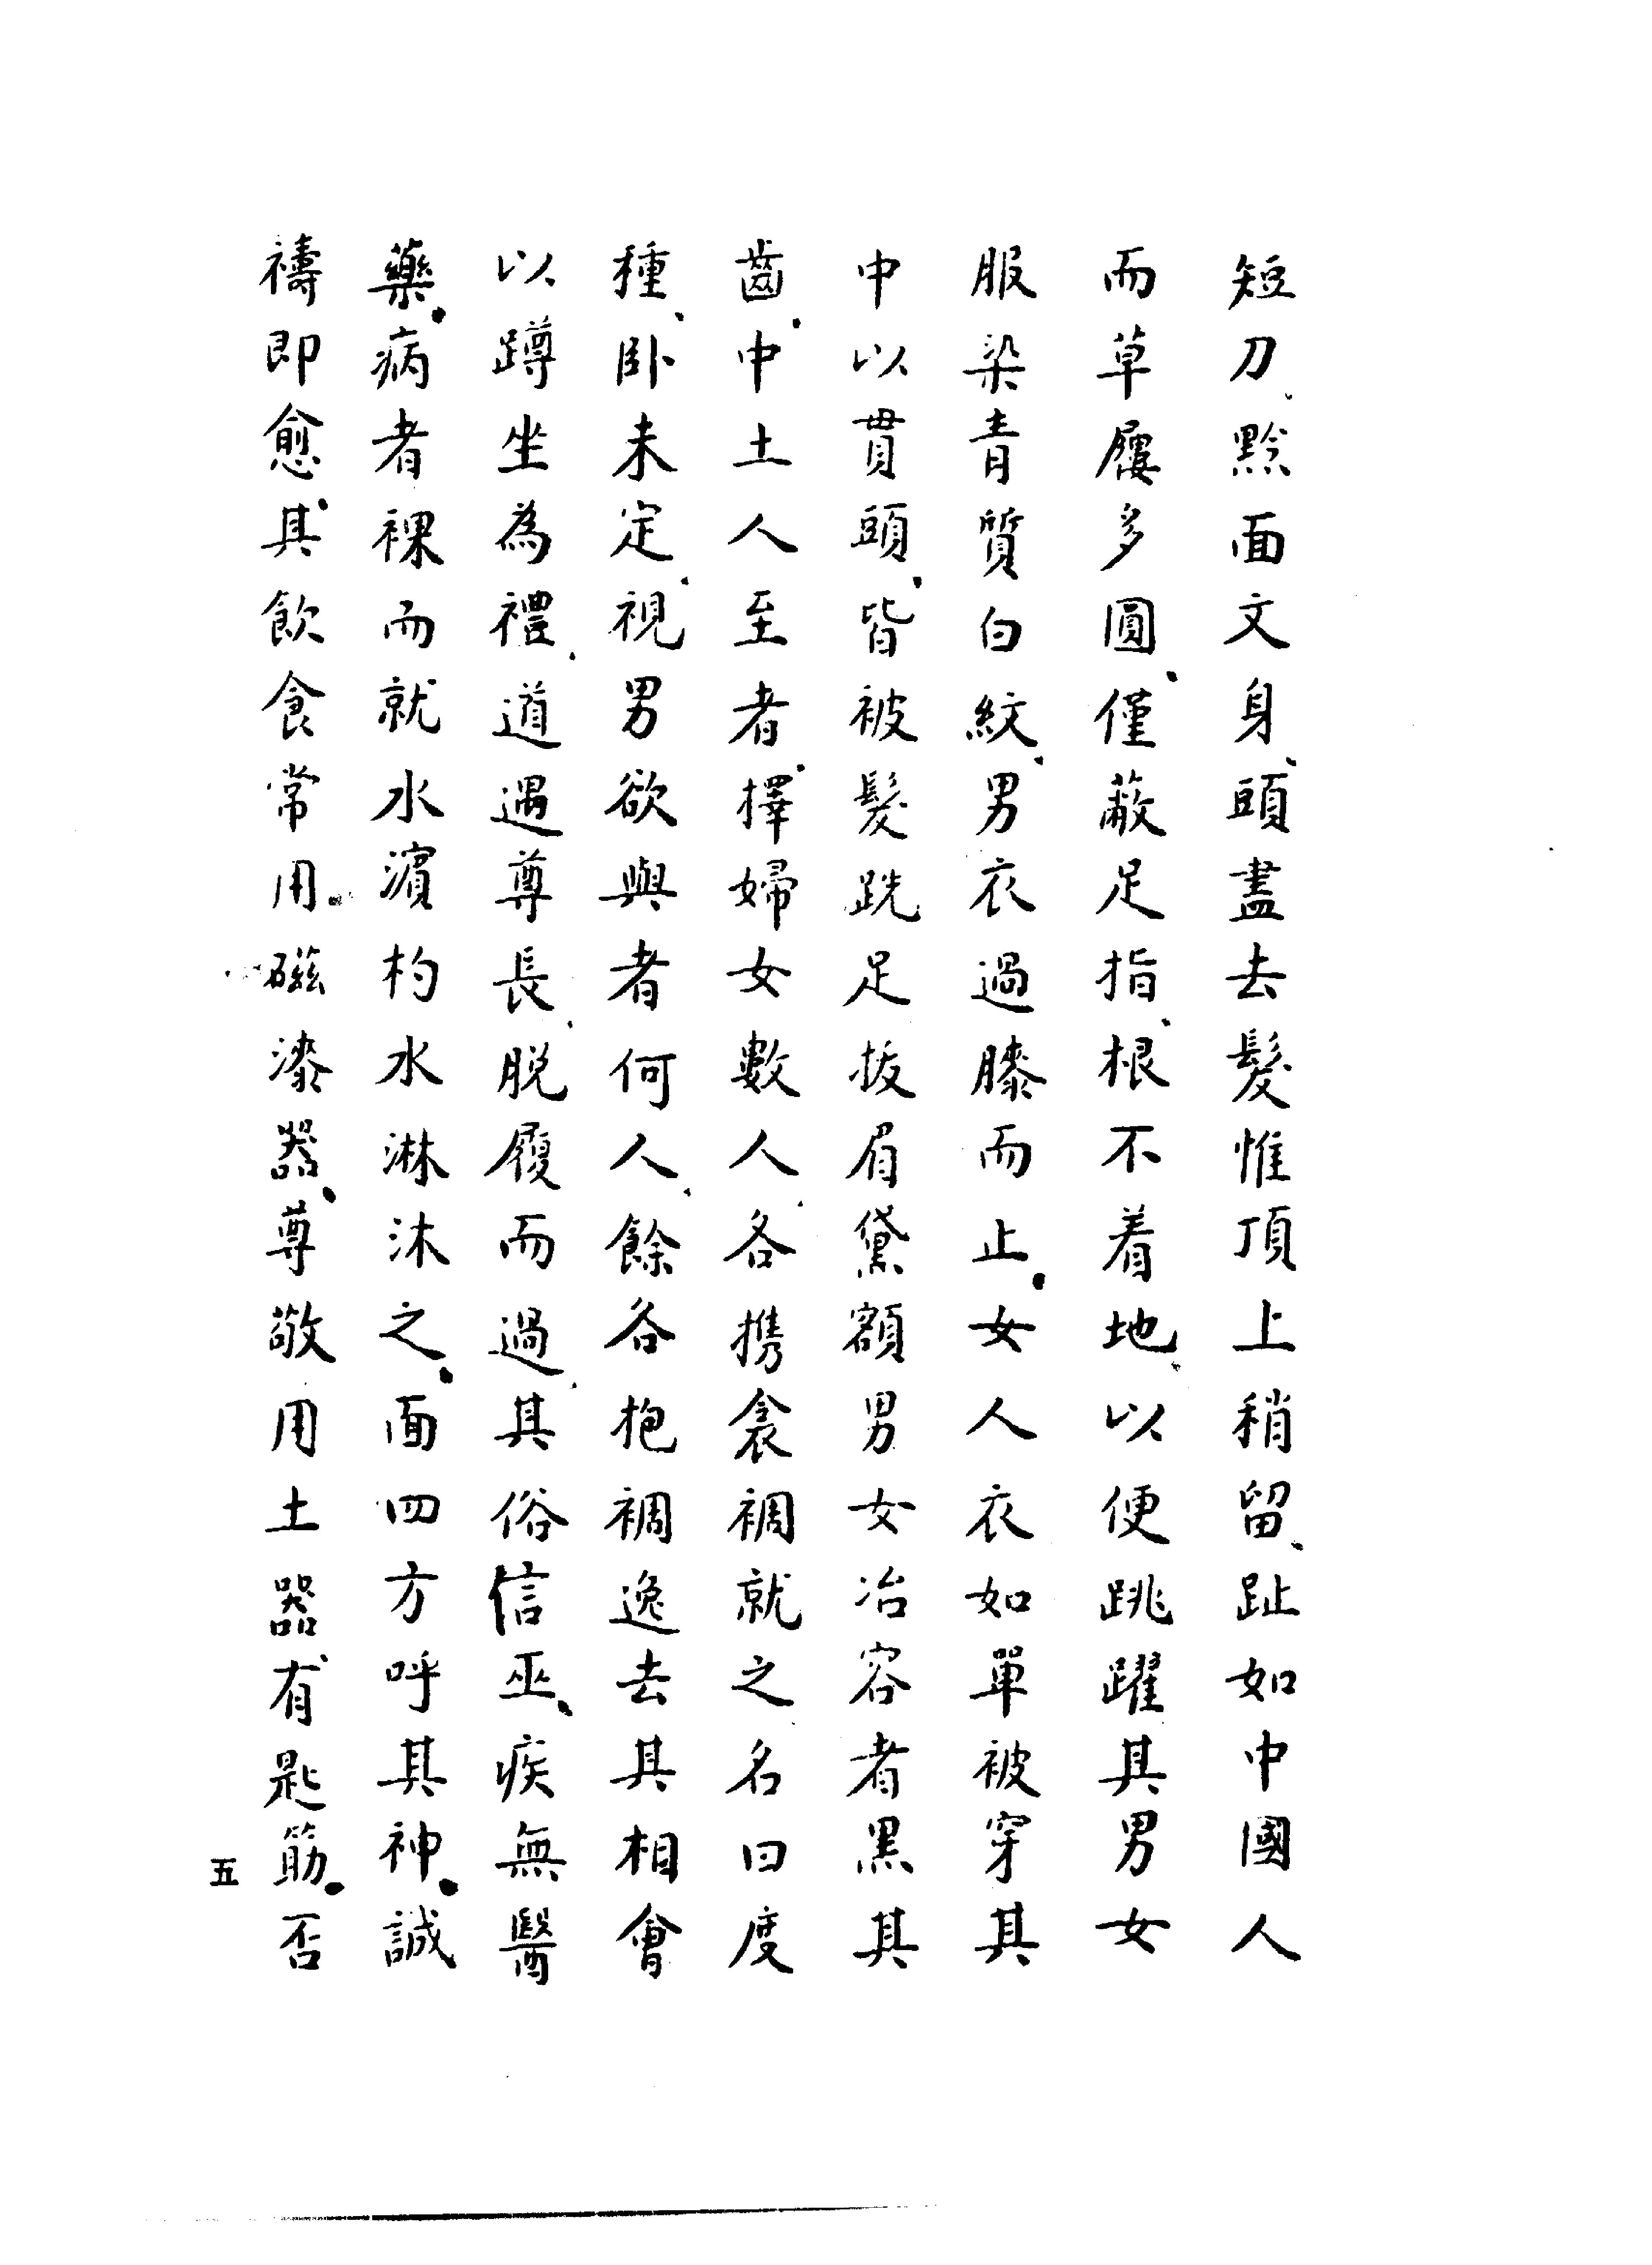 短刀、黥面文身、頭盡去髮惟頂上稍留、趾如中國人
而草屨多圓、僅蔽足指、根不着地、以便跳躍其男女
服染青質白紋、男衣過膝而止、女人衣如單被穿其
中以貫頭、皆被髮跣足拔眉黛額男女冶容者黑其
齒、中土人至者、擇婦女數人、各携衾裯就之名曰度
種、臥未定、視男欲與者何人、餘各抱裯逸去其相會
以蹲坐為禮、道遇尊長、脫履而過、其俗信巫、疾無醫
藥、病者裸而就水濱杓水淋沐之、面四方呼其神、誠
禱即愈、其飲食常用、磁漆器、尊敬用土器、有匙筯、否
五